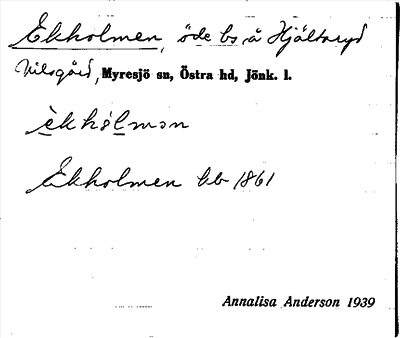 Ekholmen, öde bs å Hjältaryd
Nilsgård, Myresjö sn, Östra hd, Jönk. l.
èkhólmən
Ekholmen kb 1861
Annalisa Anderson 1939